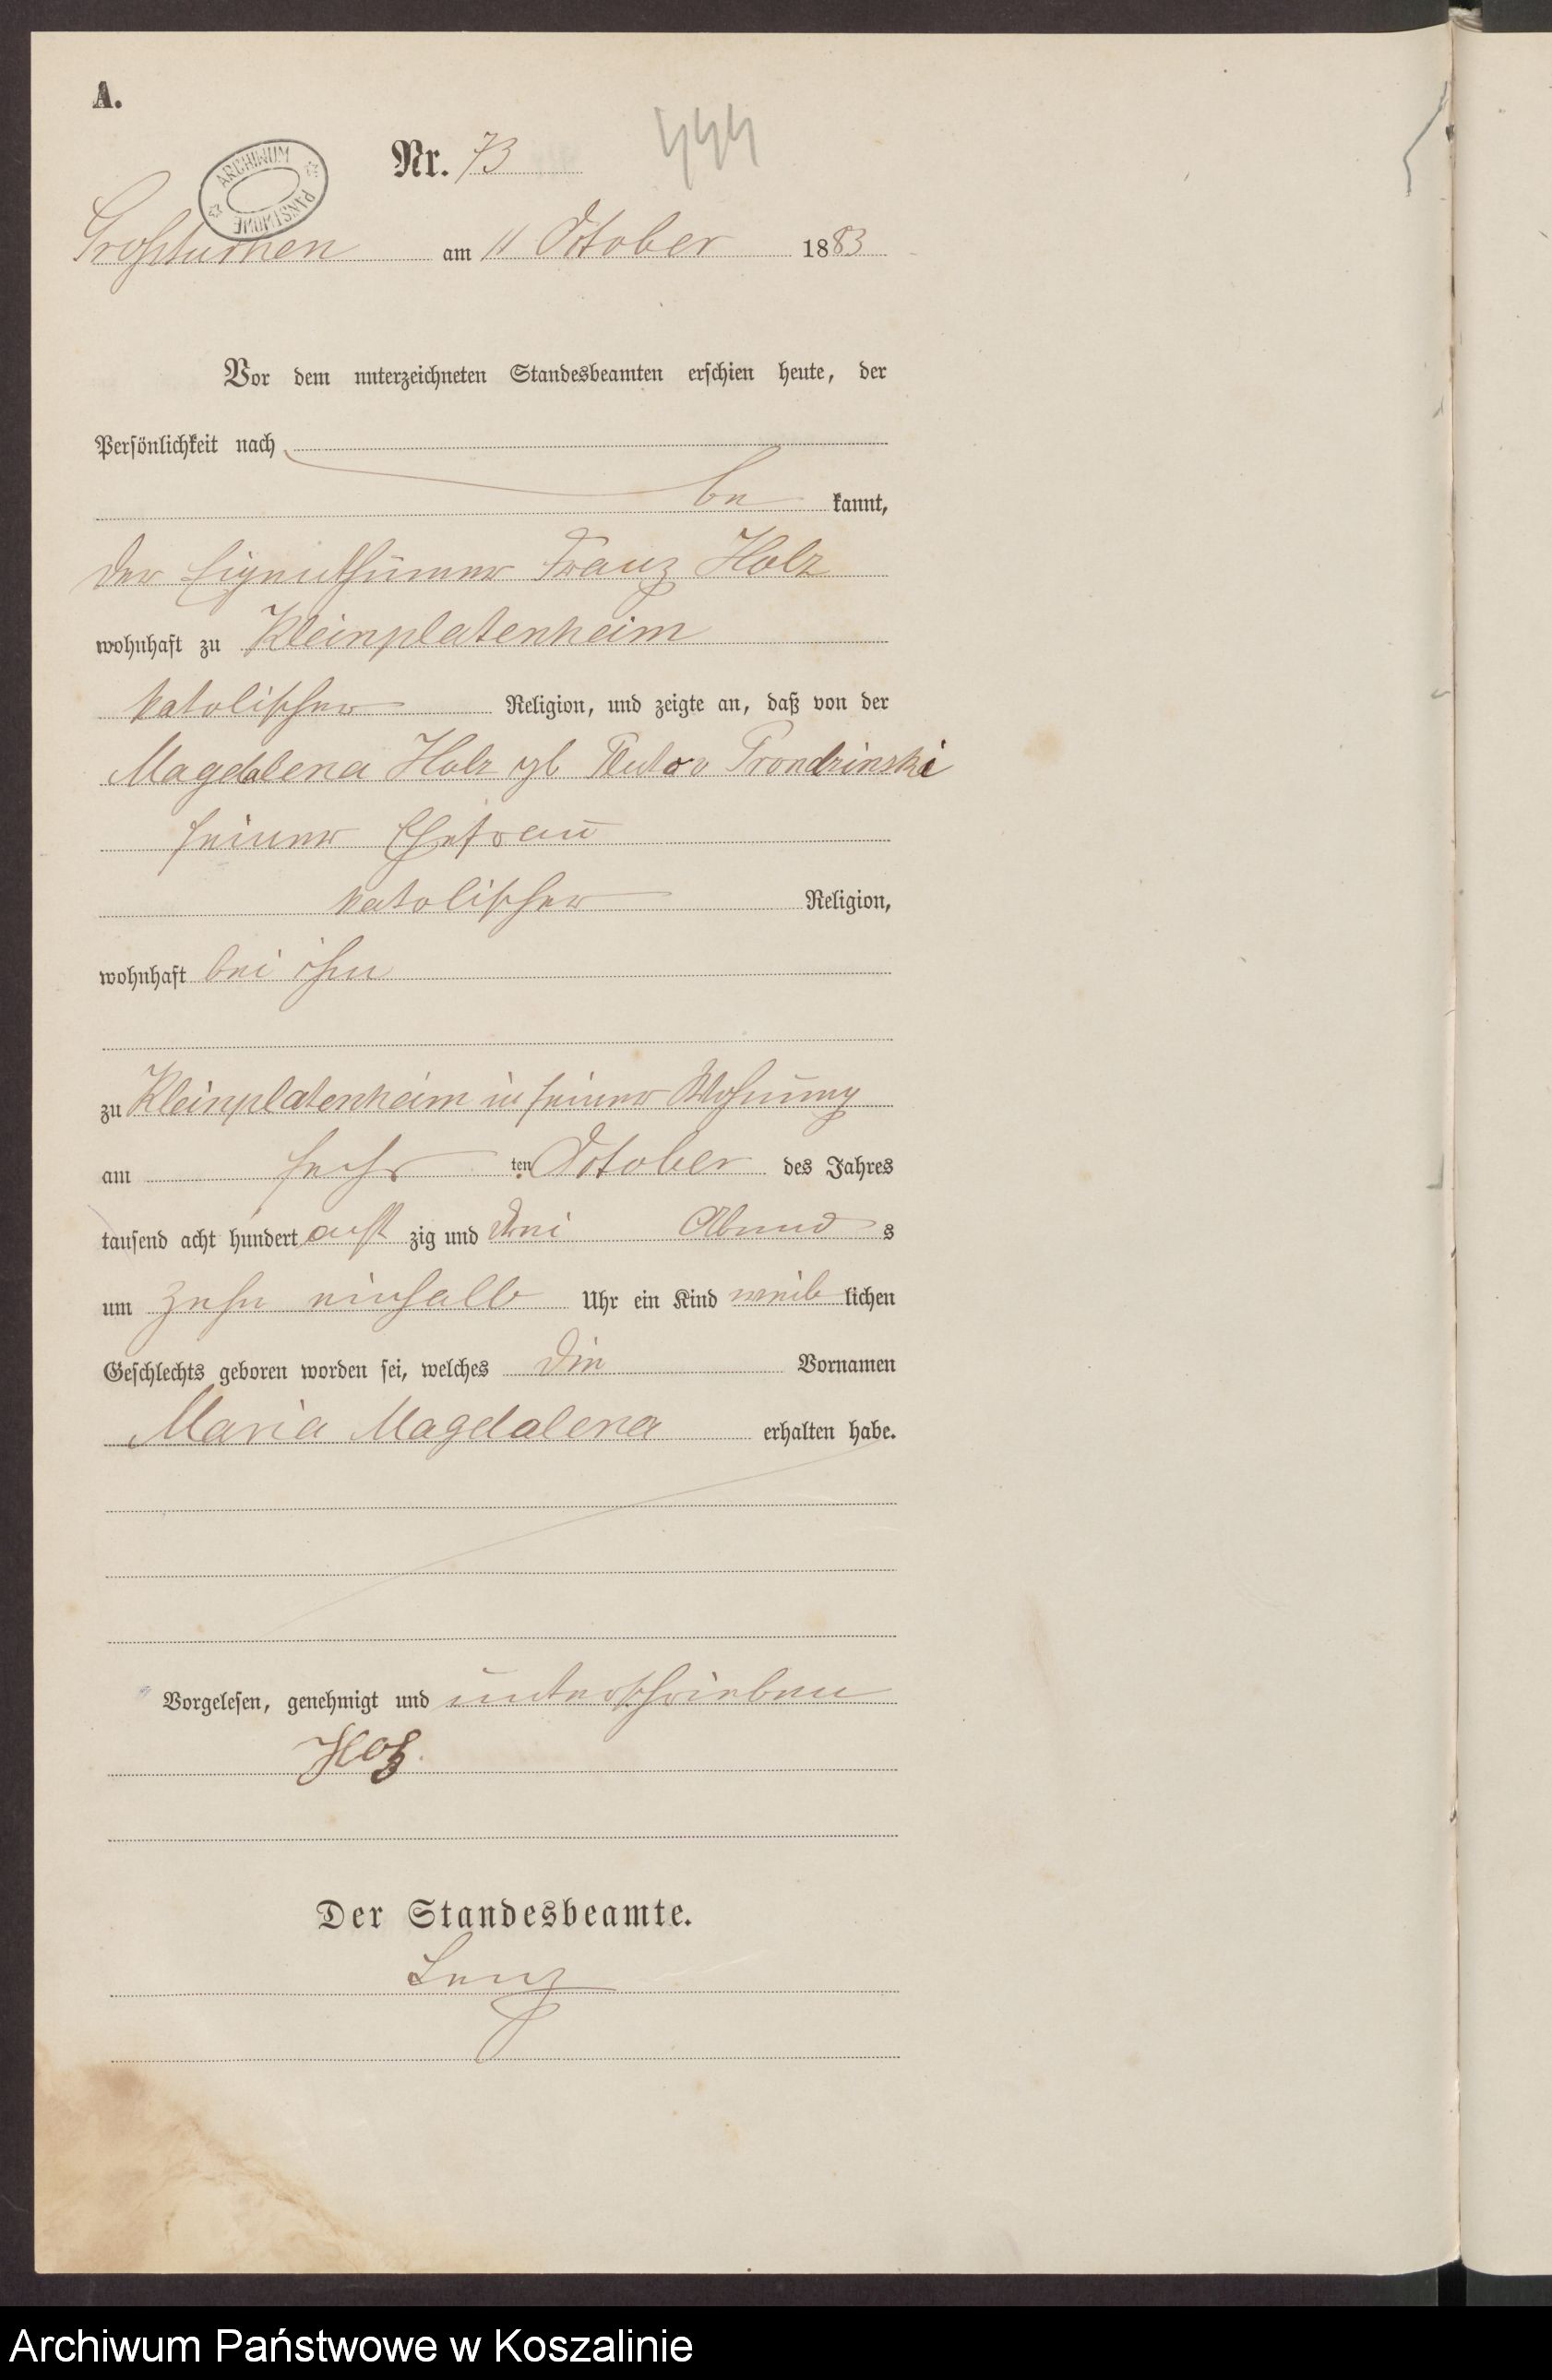 A.
ARCHIWUM PAŃSTWOWE
Nr. 73
444
Großtuchen am 11 October 1883
Vor dem unterzeichneten Standesbeamten erschien heute, der
Persönlichkeit nach
be kannt,
der Eigenthümer Franz Holz
wohnhaft zu Kleinplatenheim
katolischer Religion, und zeigte an, daß von der
Magdalena Holz gb Prondzinski
seiner Ehefrau
katolischer Religion,
wohnhaft bei ihm
zu Kleinplatenheim in seiner Wohnung
am sechs ten October des Jahres
tausend acht hundert acht zig und drei Abend s
um zehn einhalb Uhr ein Kind weib lichen
Geschlechts geboren worden sei, welches die Vornamen
Maria Magdalena erhalten habe.
Vorgelesen, genehmigt und unterschrieben
Der Standesbeamte.
Lenz
Archiwum Państwowe w Koszalinie